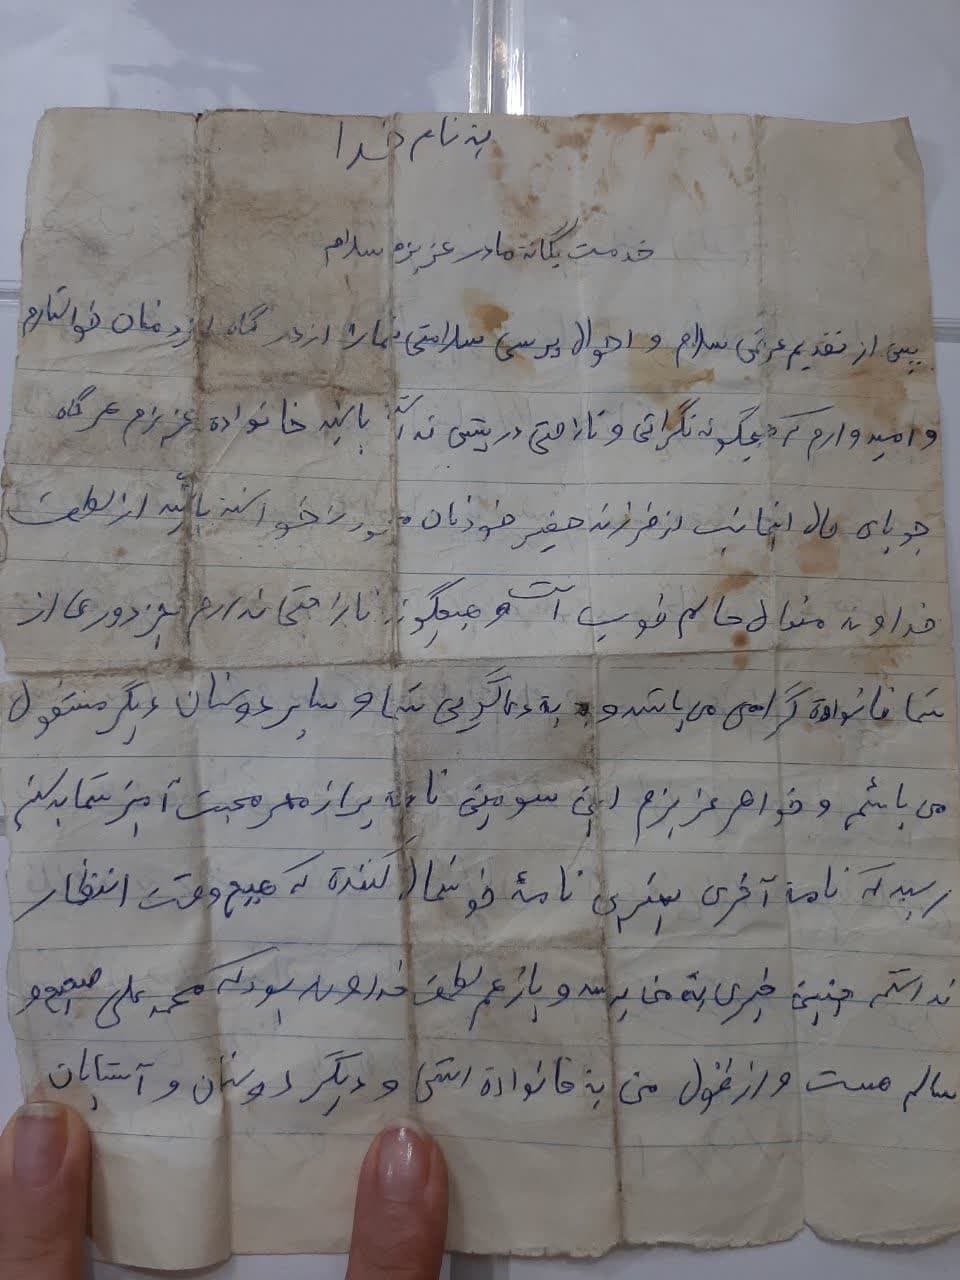 به نام خدا
خدمت یگانه مادر عزیزم سلام
پس از تقدیم عرض سلام و احوال پرسی سلامتی شما را از درگاه ایزد منان خواستارم
و امیدوارم که هیچگونه نگرانی و ناراحتی در پیش نداشته باشید خانواده عزیزم هرگاه
جویای حال اینجانب از فرزند حقیر خودتان خواسته باشید از لطف
خداوند متعال حالم خوب است و هیچگونه ناراحتی ندارم بجز دوری از
شما خانواده گرامی می باشد و به دعاگویی شما و سایر دوستان دیگر مشغول
می باشم و خواهر عزیزم این سومین نامه پر از مهر محبت آمیز شما بدستم
رسید که نامه آخری بهترین نامه خوشحال کننده که هیچ وقت انتظار
نداشتم چنین خبری به من برسد و باز هم لطف خداوند بود که محمد علی صحیح و
سالم هست و از قول من به خانواده و دیگر دوستان و آشنایان